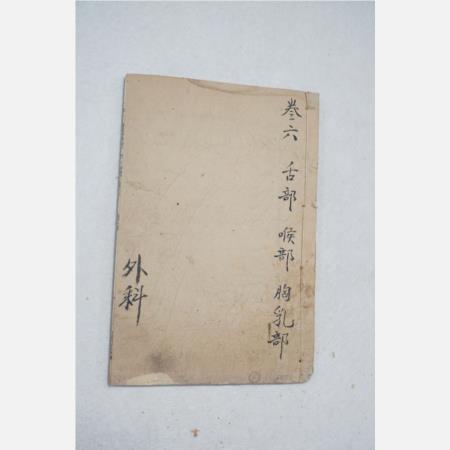 卷六 舌部 喉部 胸乳部
外科